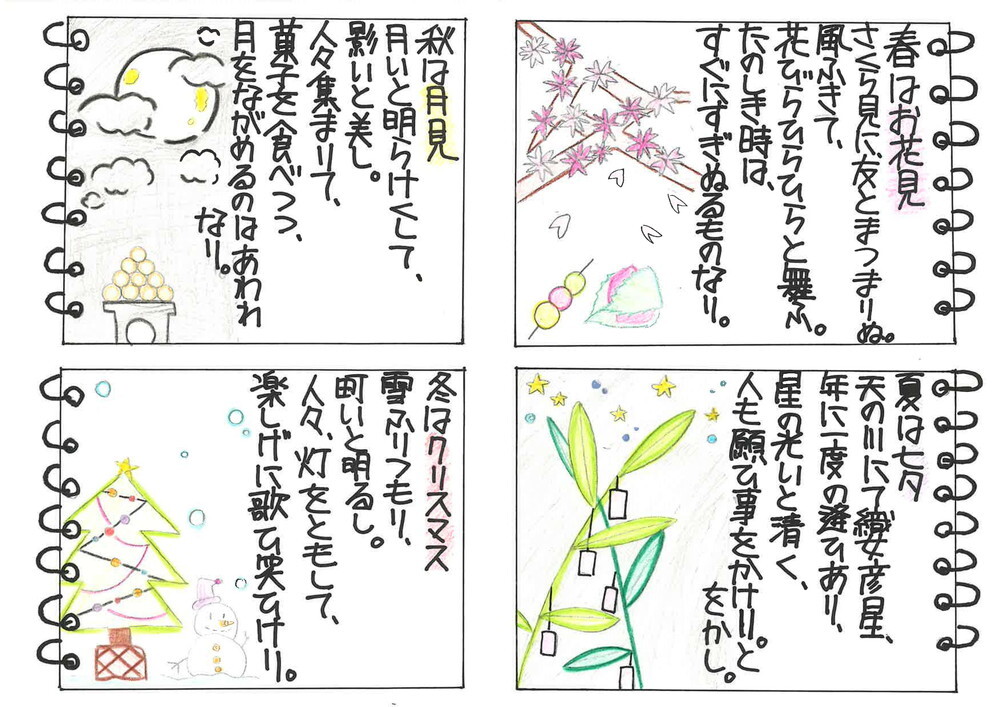 春はお花見
さくら見に、友とまつまりぬ。
風ふきて、
花びらひらひらと舞ふ。
たのしき時は、
すぐにすぎぬるものなり。
夏は七夕
天の川にて織女彦星、
年に一度の逢ひあり、
星の光いと清く、
人も願ひ事をかけり。と
をかし。
秋は月見
月いと明らけくして、
影いと美し。
人々集まりて、
菓子を食べつつ、
月をながめるのはあわれ
なり。
冬はクリスマス
雪ふりつもり、
町いと明るし。
人々、灯をともして、
楽しげに歌ひ笑ひけり。